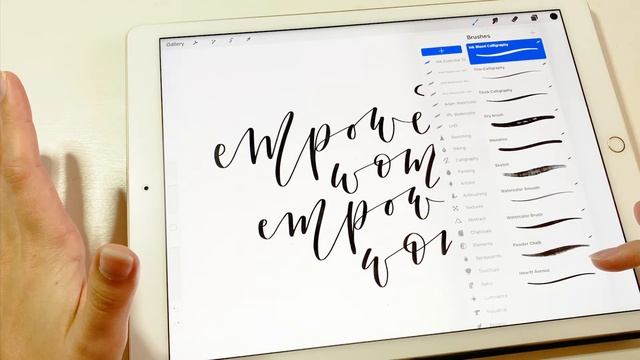 Gallery
Brushes
Ink Bleed Calligraphy
Thick Calligraphy
Dry Brush
Blotchy
Sketch
Watercolor Smooth
Watercolor Brush
Powder Chalk
Hewitt Avenue
Sketching
Inking
Calligraphy
Painting
Artistic
Airbrushing
Textures
Abstract
Charcoals
Elements
Spraypaints
Touchups
Retro
Luminance
Industrial
empowe
wom
empow
wor